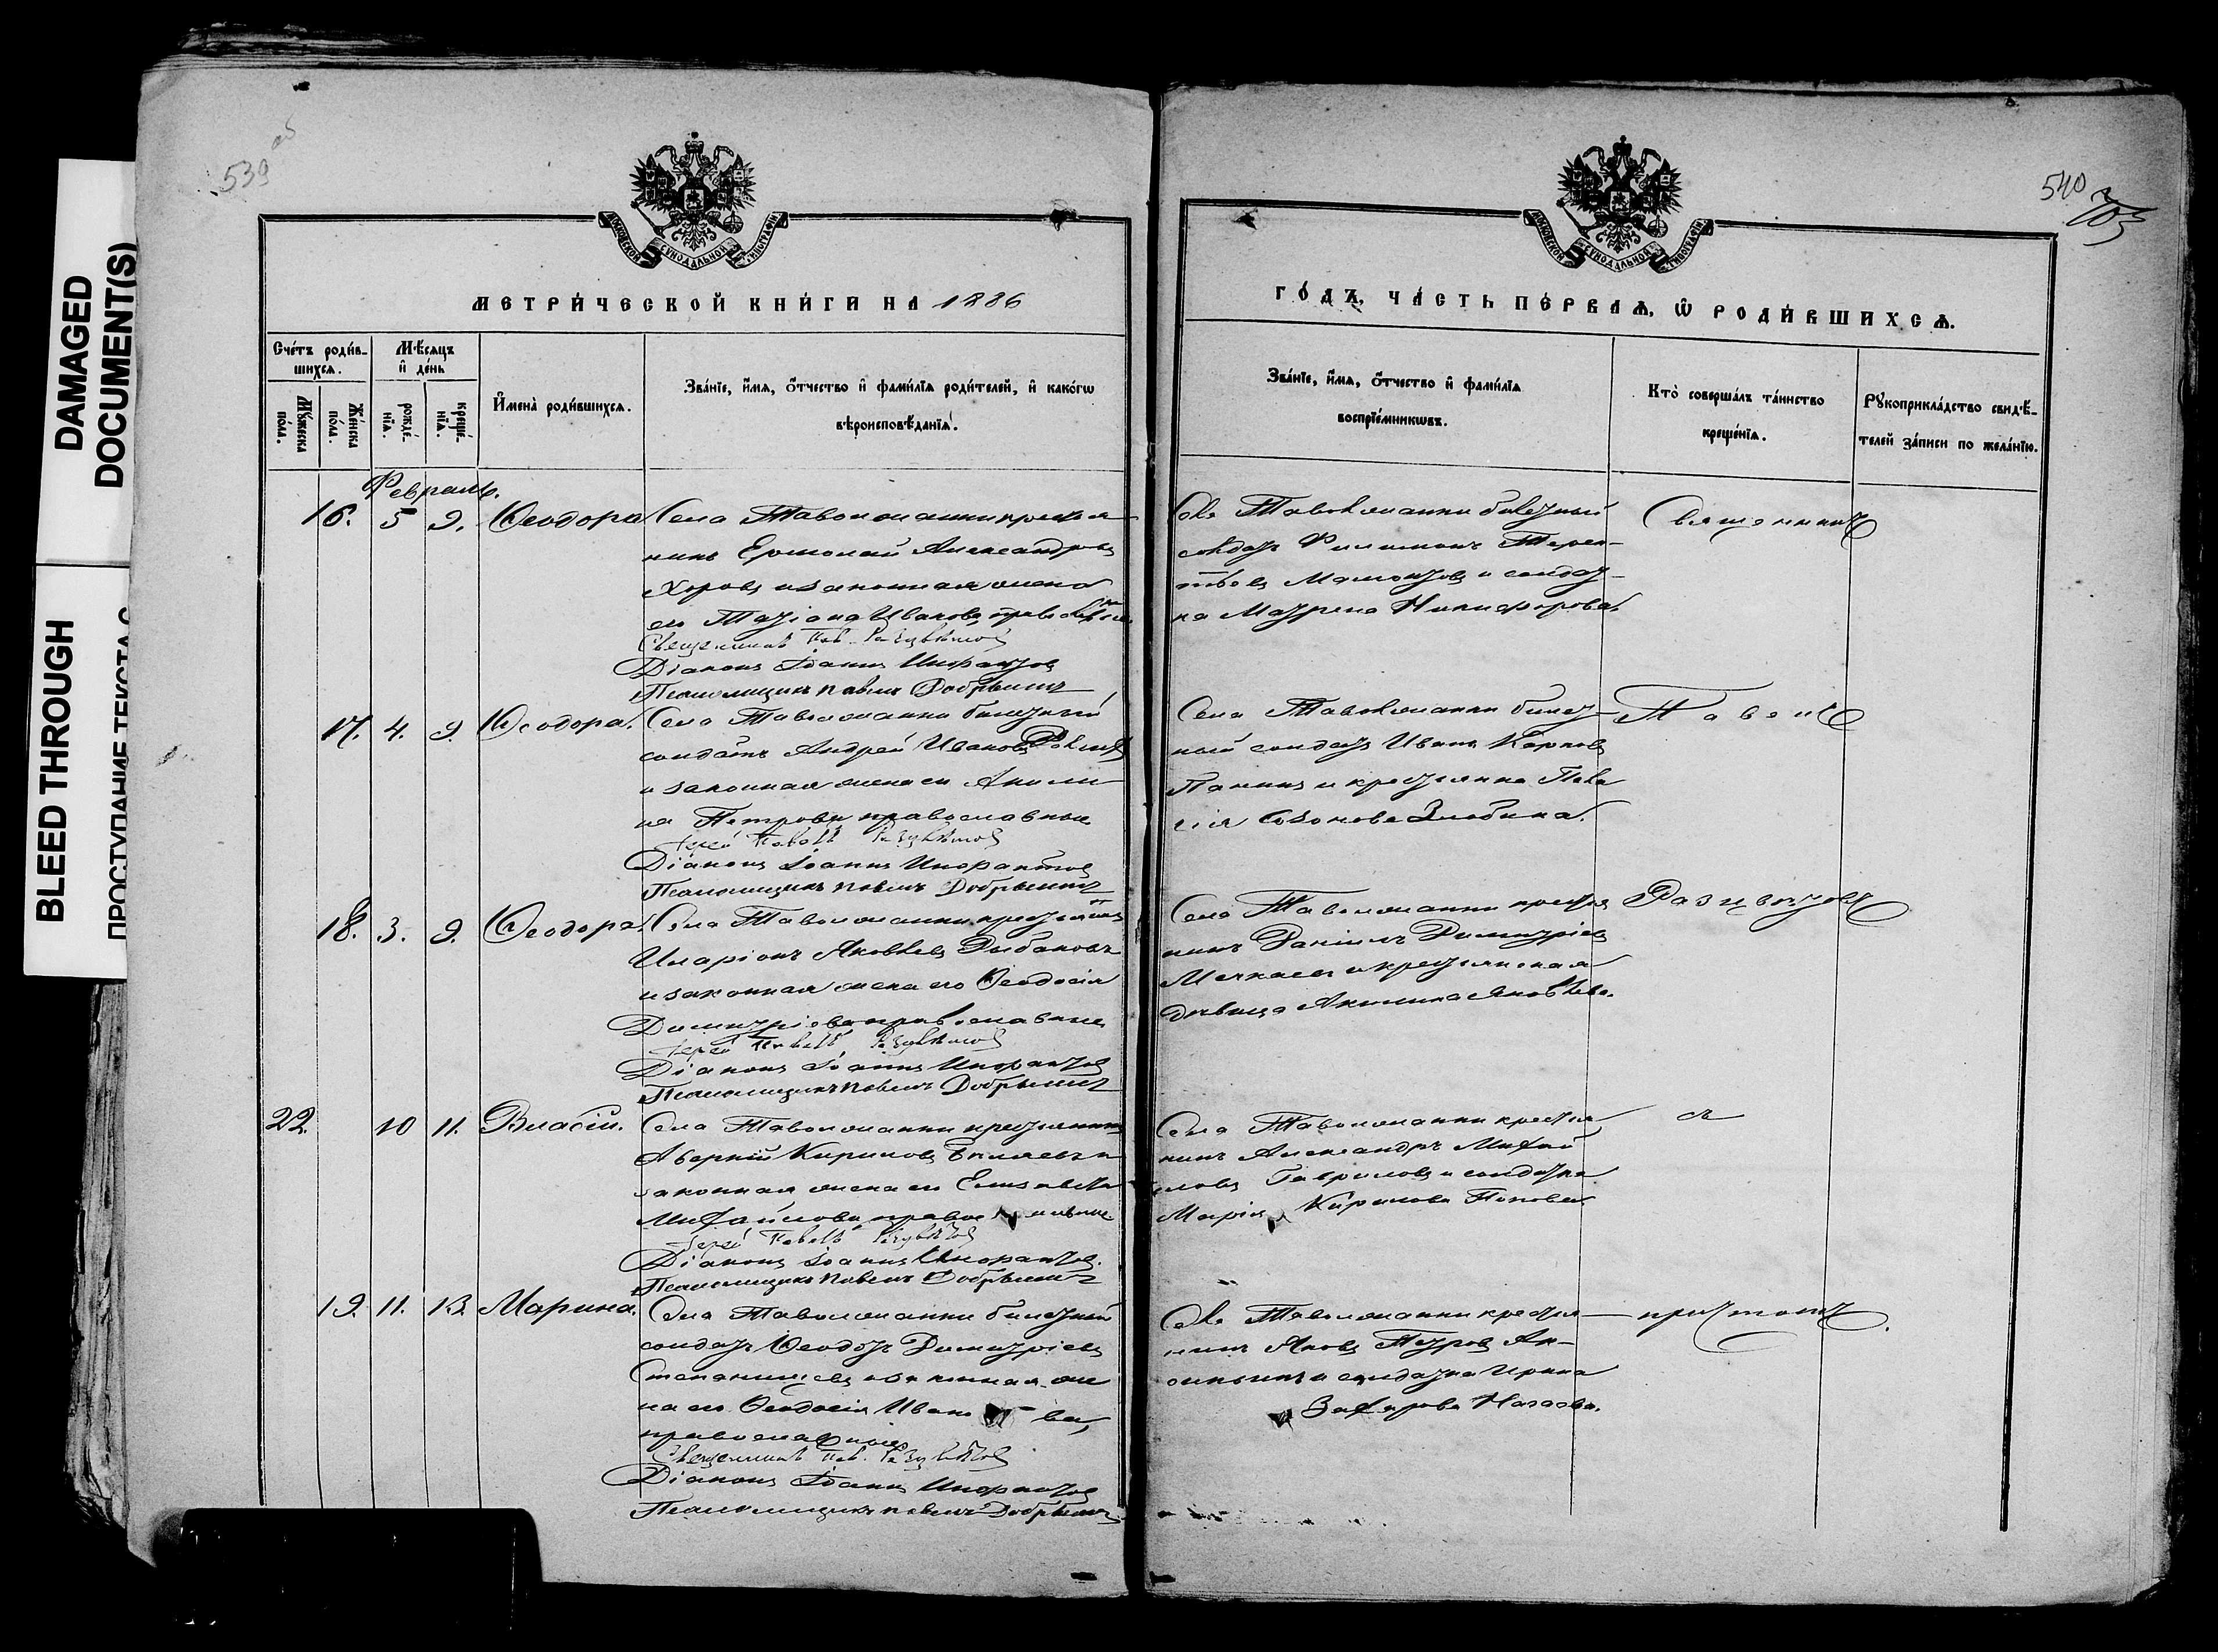 DAMAGED
DOCUMENT(S)
BLEED THROUGH
539 об
МОСКОВСКОЙ СѴНОДАЛЬНОЙ ТИПОГРАФІИ
МЕТРИ́ЧЕСКОЙ КНИ́ГИ НА 1886
Сче́тъ роди́в-
шихсѧ.
Мꙋ́жеска по́ла.
Же́нска по́ла.
Мѣ́сѧцъ
и҆ де́нь
рожде́нїѧ.
креще́нїѧ.
И҆мена̀ роди́вшихсѧ.
Зва́нїе, и҆́мѧ, ѻ҆́тчество и҆ фами́лїѧ роди́телей, и҆ како́гѡ
вѣроисповѣ́данїѧ.
Февраль.
16. 5 9. Ѳеодора
Села Таволожанки крестья-
нинъ Ермолай Александровъ
и законная жена
его Татіана Иванова, православные
Священникъ Пав. Разцвѣтовъ
Діаконъ Іоаннъ Инфантовъ
Псаломщикъ Павелъ Добрынинъ
17. 4. 9. Ѳеодора.
Села Таволожанки билетный
солдатъ Андрей Ивановъ
и законная жена его Акили-
на Петрова православные
Іерей Павелъ Разцвѣтовъ
Діаконъ Іоаннъ Инфантовъ
Псаломщикъ Павелъ Добрынинъ
18. 3. 9. Ѳеодора.
Села Таволожанки крестьянинъ
Иларіонъ Яковлевъ Рыбаковъ
и законная жена его Ѳеодосія
Димитріева православные
Іерей Павелъ Разцвѣтовъ
Діаконъ Іоаннъ Инфантовъ
Псаломщикъ Павелъ Добрынинъ
22. 10 11. Власій.
Села Таволожанки крестьянинъ
Аверкій Кириловъ Бѣляевъ и
законная жена его Елисавета
Михайлова православные
Іерей Павелъ Разцвѣтовъ
Діаконъ Іоаннъ Инфантовъ.
Псаломщикъ Павелъ Добрынинъ
19. 11. 13. Марина.
Села Таволожанки билетный
солдатъ Ѳеодотъ Димитріевъ
и законная же-
на его Ѳеодосія Иванова,
православные
Священникъ Пав. Разцвѣтовъ
Діаконъ Іоаннъ Инфантовъ
Псаломщикъ Павелъ Добрынинъ
540
703
МОСКОВСКОЙ СѴНОДАЛЬНОЙ ТИПОГРАФІИ
ГО́ДЪ, ЧА́СТЬ ПЕ́РВАѦ, Ѽ РОДИ́ВШИХСѦ.
Зва́нїе, и҆́мѧ, ѻ҆́тчество и҆ фами́лїѧ
воспрїе́мникѡвъ.
Кто̀ соверша́лъ та́инство
креще́нїѧ.
Рꙋкоприкла́дство свидѣ́-
телей за́писи по жела́нїю.
Села Таволожанки билетный
солдатъ Филимонъ Терен-
тьевъ Мамонтовъ и солдат-
ка Матрена Никифорова.
Священникъ
Села Таволожанки билет-
ный солдатъ Иванъ Карповъ
Панинъ и крестьянка Пела-
гія Созонова Злобина.
Павелъ
Села Таволожанки крестья-
нинъ Даніилъ Димитріевъ
и крестьянская
дѣвица Акилина Яковлева.
Разцвѣтовъ
Села Таволожанки крестья-
нинъ Александръ Михай-
ловъ Гавриловъ и солдатка
Марія Кирилова Попова.
съ
Села Таволожанки крестья-
нинъ Яковъ Петровъ
и солдатка Ирина
Захарова
причтомъ.